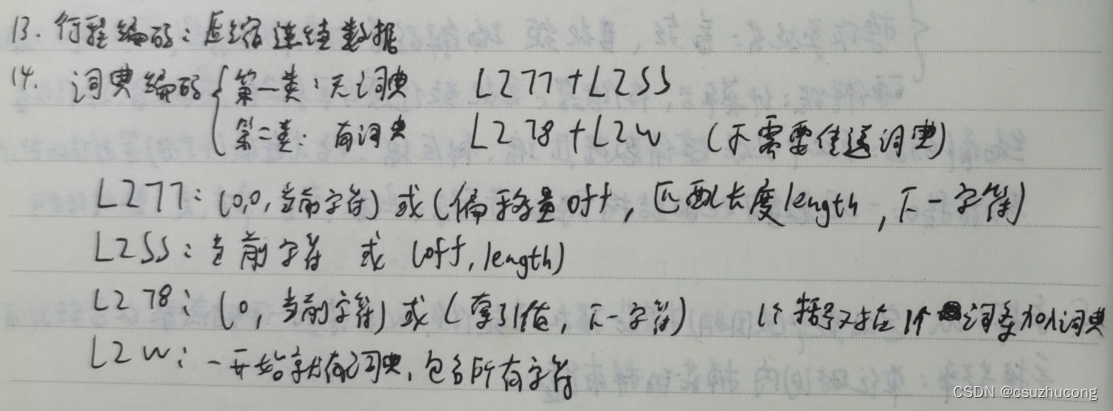 13. 行程编码：压缩连续数据
14. 词典编码 { 第一类：无词典 LZ77+LZSS
第二类：有词典 LZ78+LZW (不需要传送词典)
LZ77：(0,0,当前字符) 或 (偏移量off, 匹配长度length, 下一字符)
LZSS：当前字符 或 (off, length)
LZ78：(0, 当前字符) 或 (索引值, 下一字符) 1个括号对应1个词条加入词典
LZW：一开始就有词典, 包含所有字符
CSDN @csuzhucong